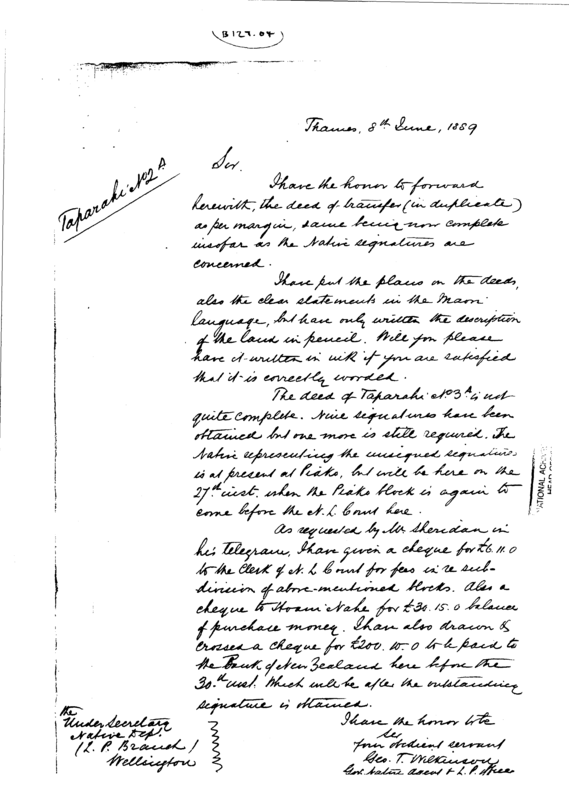 B127.04
Thames, 8th June, 1889
Taparahi No 2A
Sir.
I have the honor to forward
herewith, the deed of transfer (in duplicate)
as per margin, same being now complete
insofar as the Native signatures are
concerned.
I have put the plans on the deeds,
also the clear statements in the Maori
language, but have only written the description
of the land in pencil. Will you please
have it written in ink if you are satisfied
that it is correctly worded.
The deed of Taparahi No 3A is not
quite complete. Nine signatures have been
obtained but one more is still required. The
Native representing the unsigned signatures
is at present at Piako, but will be here on the
27th inst. when the Piako block is again to
come before the N. L. Court here.
As requested by Mr Sheridan in
his telegram, I have given a cheque for £6. 11. 0
to the Clerk of N. L. Court for fees in re sub-
division of above-mentioned blocks. Also a
cheque to Hoani Nahe for £30. 15. 0 balance
of purchase money. I have also drawn &
crossed a cheque for £200. 10. 0 to be paid to
the Bank of New Zealand here before the
30th inst. Which will be after the outstanding
signature is obtained.
I have the honor to be
Sir
Your obedient servant
Geo. T. Wilkinson
Govt Native agent & L. P. Officer
The
Under Secretary
Native Dept.
(L. P. Branch)
Wellington
NATIONAL
HEAD